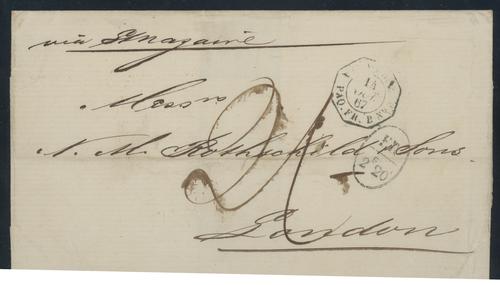 via St Nazaire
Messrs
N. M. Rothschild & Sons
London
14
OCT
67
PAQ. FR. B
FR.
2F 20c
2/